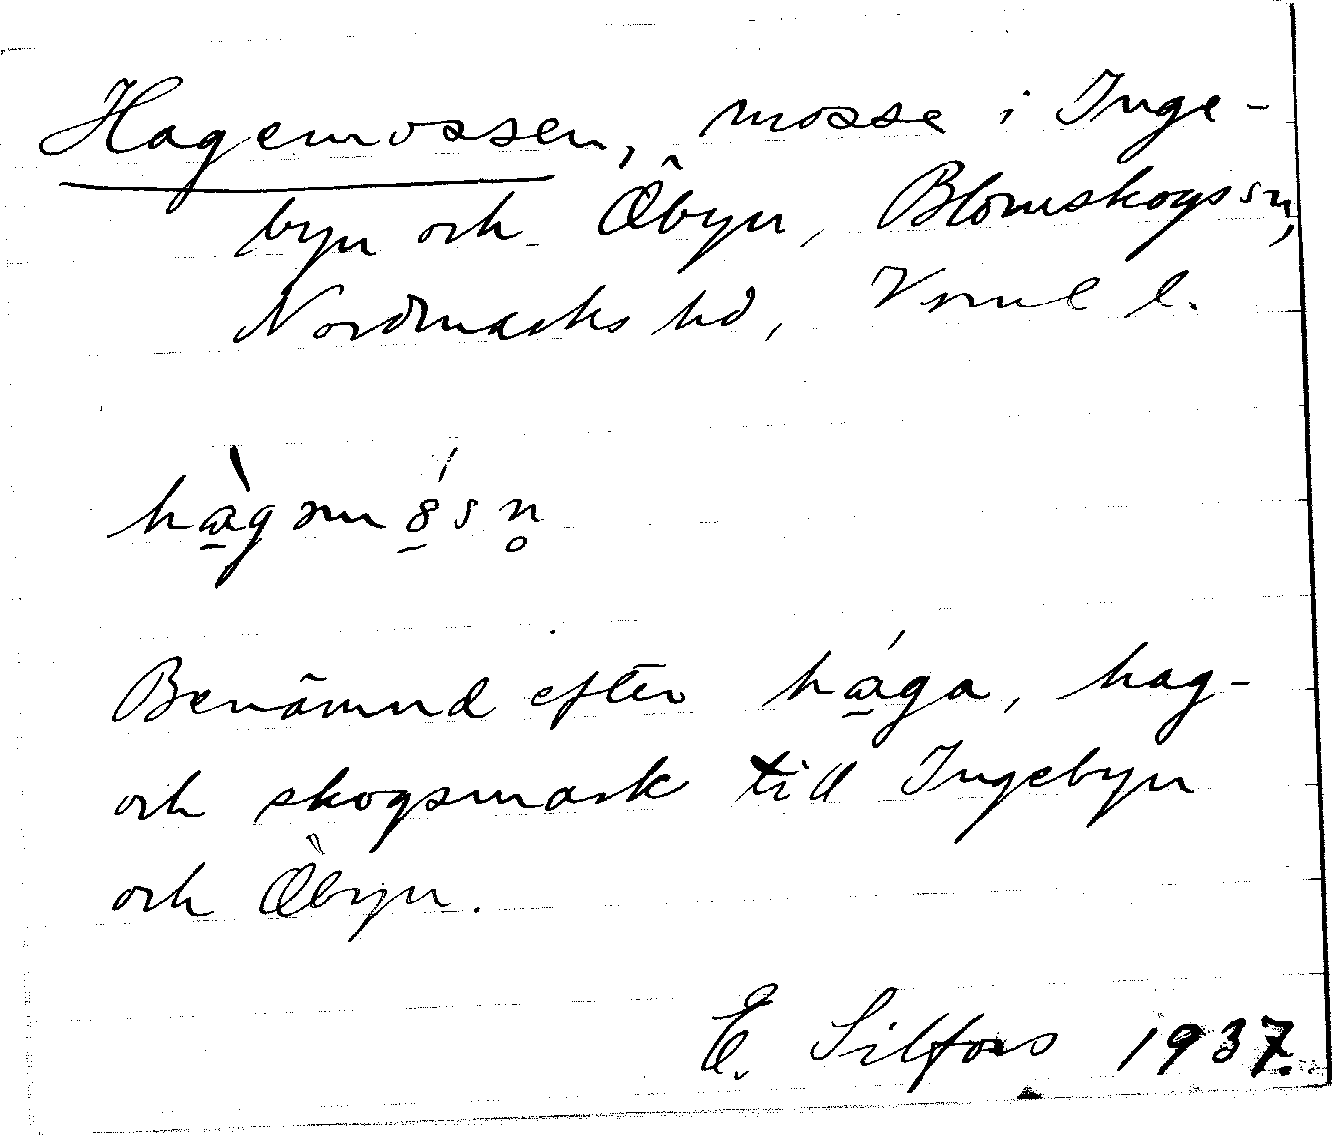 Hagemossen, mosse i Inge-
byn och Åbyn, Blomskogs sn,
Nordmarks hd, Vrml l.
hàgmósn̥
Benämnd efter hága, hag-
och skogsmark till Ingebyn
och Åbyn.
E. Silfors 1937.